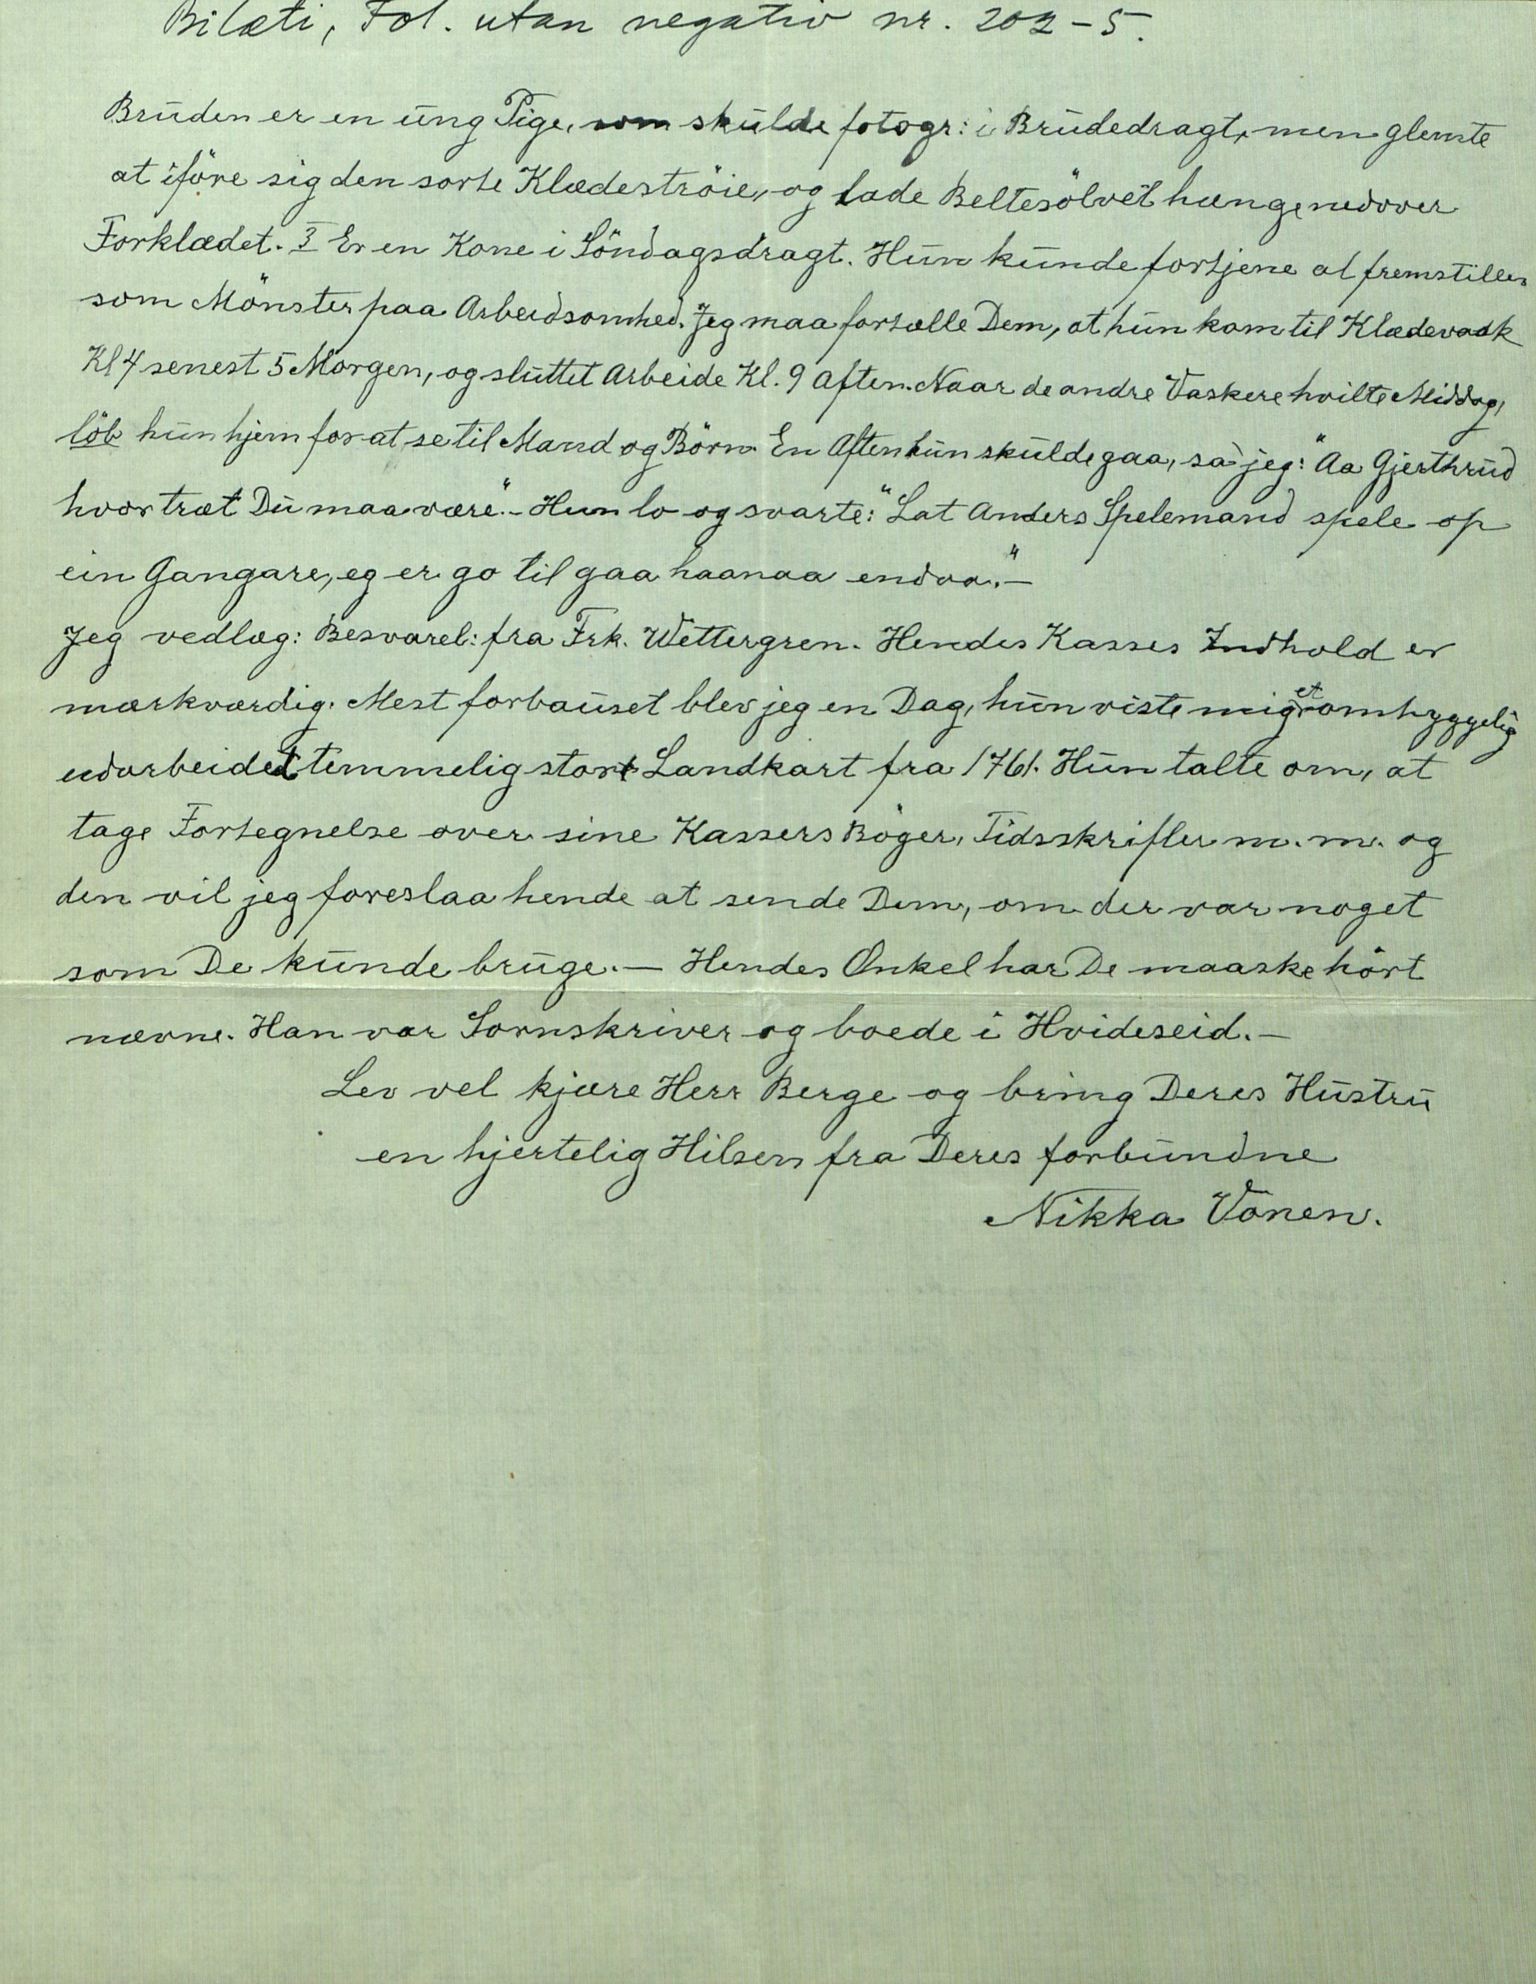 Bilæti, Fol. utan negativ nr. 202-5.
Bruden er en ung Pige, som skulde fotogr: i Brudedragt, men glemte
at iföre sig den sorte Klædeströie, og lade Beltesölvet hænge nedover
Forklædet. 3 Er en Kone i Söndagsdragt. Hun kunde fortjene at fremstilles
som Mönster paa Arbeidsomhed. Jeg maa fortælle Dem, at hun kom til Klædevask
Kl 4 senest 5 Morgen, og sluttet Arbeide Kl. 9 Aften. Naar de andre Vaskere hvilte Middag,
löb hun hjem for at se til Mand og Börn. En Aften hun skulde gaa, sa jeg: "Aa Gjerthrud
hvor træt Du maa være". - Hun lo og svarte: "Lat Anders Spelemand spele op
ein Gangare, eg er go til gaa haanaa endaa." -
Jeg vedlæg: Besvarel: fra Frk. Wettergren. Hendes Kasses Indhold er
mærkværdig. Mest forbauset blev jeg en Dag, hun viste mig et omhyggelig
udarbeidet temmelig stort Landkart fra 1761. Hun talte om, at
tage Fortegnelse over sine Kassers Böger, Tidsskrifter m. m. og
den vil jeg foreslaa hende at sende Dem, om der var noget
som De kunde bruge. - Hendes Onkel har De maaske hört
nævne. Han var Sornskriver og boede i Hvideseid. -
Lev vel kjære Herr Berge og bring Deres Hustru
en hjertelig Hilsen fra Deres forbundne
Nikka Vonen.